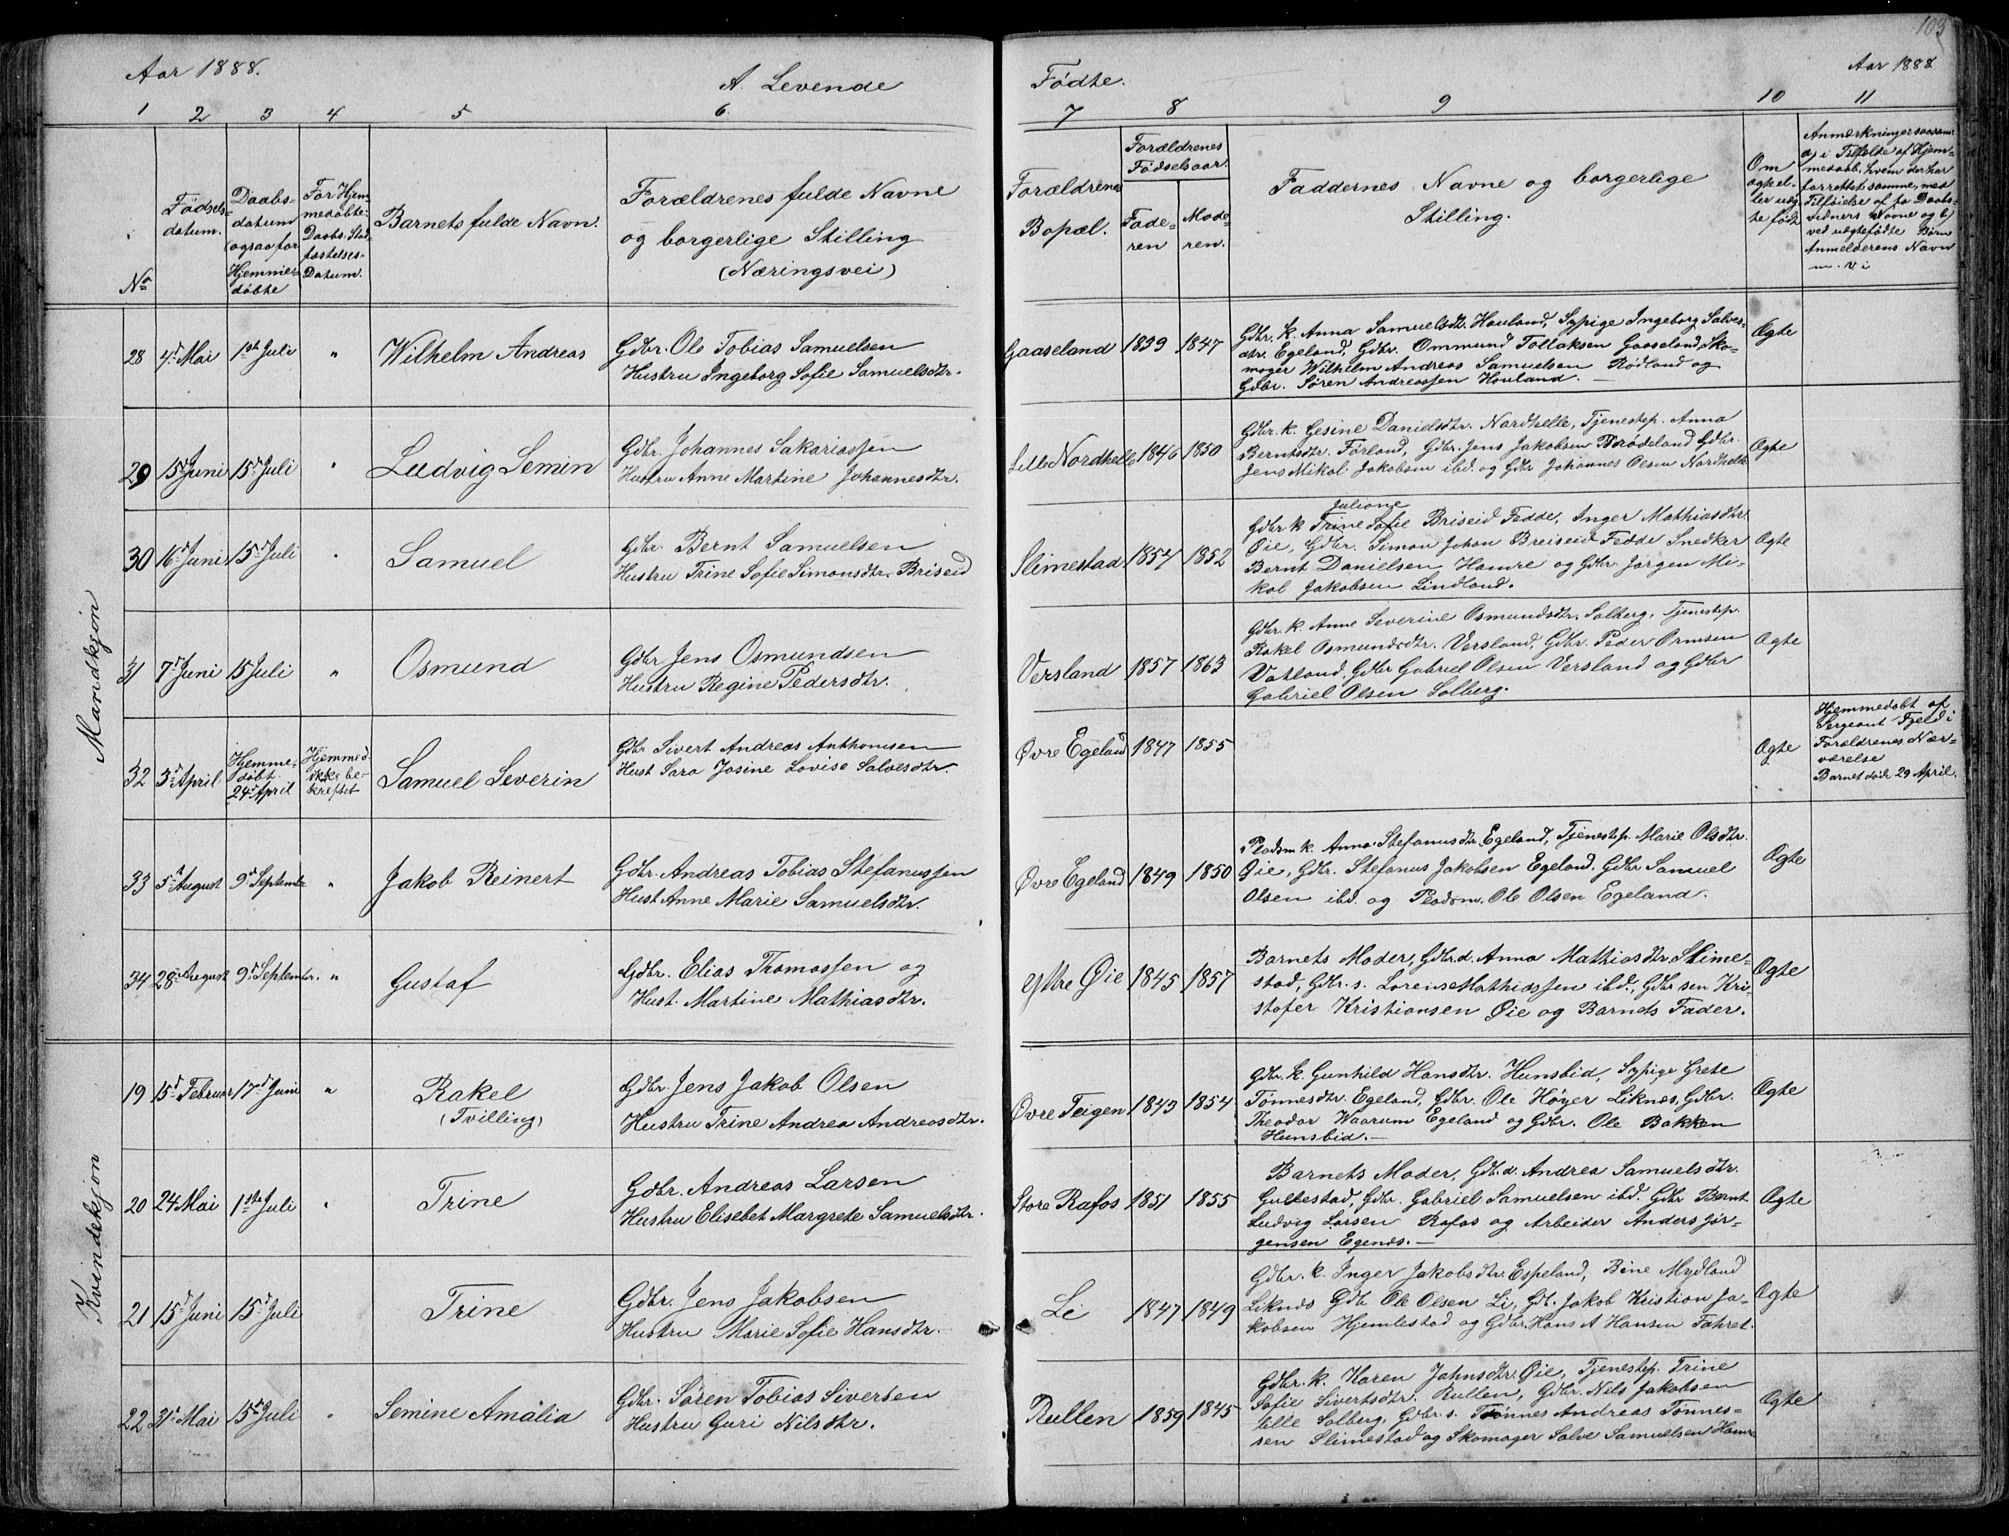 103
Aar 1888.
A. Levende
Fødte.
Aar 1888
1 2 3 4 5 6 7 8 9 10 11
No
Fødsels-
datum.
Daabs-
datum
ogsaa for
Hjemme-
døbte
For Hjem-
medøbte:
Daabs. Stad-
fæstelses-
Datum.
Barnets fulde Navn.
Forældrenes fulde Navne
og borgerlige Stilling
(Næringsvei)
Forældrenes
Bopæl.
Forældrenes
Fødselsaar.
Fade-
ren
Mode-
ren.
Faddernes Navne og borgerlige
Stilling.
Om
ægte el-
ler uæg-
te født
Anmærkninger saasom
a) i Tilfælde af Hjem-
medaab, hvem der har
forrettet samme, med
Tilføielse af to Daabs-
vidners Navne og b)
ved uægtefødte Børn
Anmelderens Navn
m. v i
Mandkjøn
28 4d Mai 1ste Juli " Wilhelm Andreas
Gdbr. Ole Tobias Samuelsen
Hustru Ingeborg Sofie Samuelsdtr.
Gaaseland 1839 1847
Gdbr. k. Anna Samuelsdtr. Houland, Sypige Ingeborg Salves-
dtr. Egeland, Gdbr. Ommund Tollaksen Gaaseland, Sko-
mager Wilhelm Andreas Samuelsen Rødland og
Gdbr. Søren Andreassen Houland.
Ægte
29 15d Juni 15d Juli " Ludvig Semin
Gdbr. Johannes Sakariassen
Hustru Anne Martine Johannesdtr.
Lille Nordhelle 1846 1850
Gdbr. k. Gesine Danielsdtr. Nordhelle, Tjenestep. Anna
Berntsdtr. Førland, Gdbr. Jens Jakobsen Brødeland Gdbr.
Jens Mikal Jakobsen ibd. og Gdbr Johannes Olsen Nordhelle
Ægte
30 16d Juni 15d Juli " Samuel
Gdbr. Bernt Samuelsen
Hustru Trine Sofie Simonsdtr. Briseid
Slimestad 1854 1852
Juliane
Gdbr k Trine Sofie Briseid Fedde, Inger Mathiasdtr.
Øie, Gdbr. Simon Johan Breiseid Fedde Snedker
Bernt Danielsen Hamre og Gdbr. Jørgen Mi-
kal Jakobsen Lindland.
Ægte
31 7d Juni 15 Juli " Osmund
Gdbr Jens Osmundsen
Hustru Regine Pedersdtr.
Versland 1857 1863
Gdbr. k. Anne Severine Osmundsdtr. Solberg, Tjenestep.
Rakel Osmundsdtr. Versland, Gdbr. Peder Ormsen
Vatland, Gdbr Gabriel Olsen Versland og Gdbr
Gabriel Olsen Solberg.
Ægte
32 3d April
Hjemme-
døbt
24d April
Hjemmed
ikke be-
kræftet
Samuel Severin
Gdbr Sivert Andreas Anthonisen
Hust Sara Josine Lovise Salvesdtr.
Øvre Egeland 1847 1855
Ægte
Hjemmedøbt af
Sergeant Fjeld i
Forældrenes Nær-
værelse
Barnet døde 29 April.
33 5d August 9d September " Jakob Reinert
Gdbr. Andreas Tobias Stefanussen
Hust Anne Marie Samuelsdtr.
Øvre Egeland 1849 1850
Pladsm k. Anna Stefanusdtr Egeland, Tjenestep. Marie Olsdtr.
Øie, Gdbr. Stefanus Jakobsen Egeland. Gdbr Samuel
Olsen ibd. og Pladsm. Ole Olsen Egeland.
Ægte
34 28 August 9d September. " Gustaf
Gdbr. Elias Thomassen og
Hust. Martine Mathiasdtr.
Yttre Øie 1845 1857
Barnets Moder, Gdbr. d. Anna Mathiasdtr Slime-
stad, Gdbr. s. Lorens Mathiassen ibd., Gdbr sen Kri-
stofer Kristiansen Øie og Barnets Fader.
Ægte
Kvindekjøn
19 15d Februar 17d Juni " Rakel
(Tvilling)
Gdbr. Jens Jakob Olsen
Hustru Trine Andrea Andreasdtr.
Øvre Teigen 1843 1854
Gdbr. k. Gunhild Hansdtr. Hunsbid, Sypige Grete
Tønnesdtr. Egeland, Gdbr. Ole Høyer Liknes, Gdbr.
Theodor Waarum Egeland og Gdbr. Ole Bakken
Hunsbid.
Ægte
20 24 Mai 1ste Juli " Trine
Gdbr. Andreas Larsen
Hustru Elisebet Margrete Samuelsdtr.
Store Rafos 1851 1855
Barnets Moder, Gdb. d. Andrea Samuelsdtr.
Gullestad, Gdbr. Gabriel Samuelsen ibd. Gdbr Bernt
Ludvig Larsen Rafos og Arbeider Anders Jør-
gensen Egenes.
Ægte
21 15d Juni 15d Juli Trine
Gdbr. Jens Jakobsen
Hustru Marie Sofie Hansdtr.
Li 1847 1849
Gdbr. k. Inger Jakobsdtr. Espeland, Bine Mydland
Liknes Gdb. Ole Olsen Li, Gdb. Jakob Kristian Ja-
kobsen Hjemlestad og Gdbr. Hans A Hansen Fahret.
Ægte
22 21d Mai 15d Juli " Semine Amalia
Gdbr. Søren Tobias Sivertsen
Hustru Guri Nilsdtr.
Rullen 1859 1845
Gdbr. k. Karen Johnsdtr Øie, Tjenestep. Trine
Sofie Sivertsdtr. Rullen, Gdbr. Nils Jakobsen
lille Solberg. Gdbr. s. Tønnes Andreas Tønnes-
sen Slimestad og Skomager Salve Samuelsen Hamre
Ægte